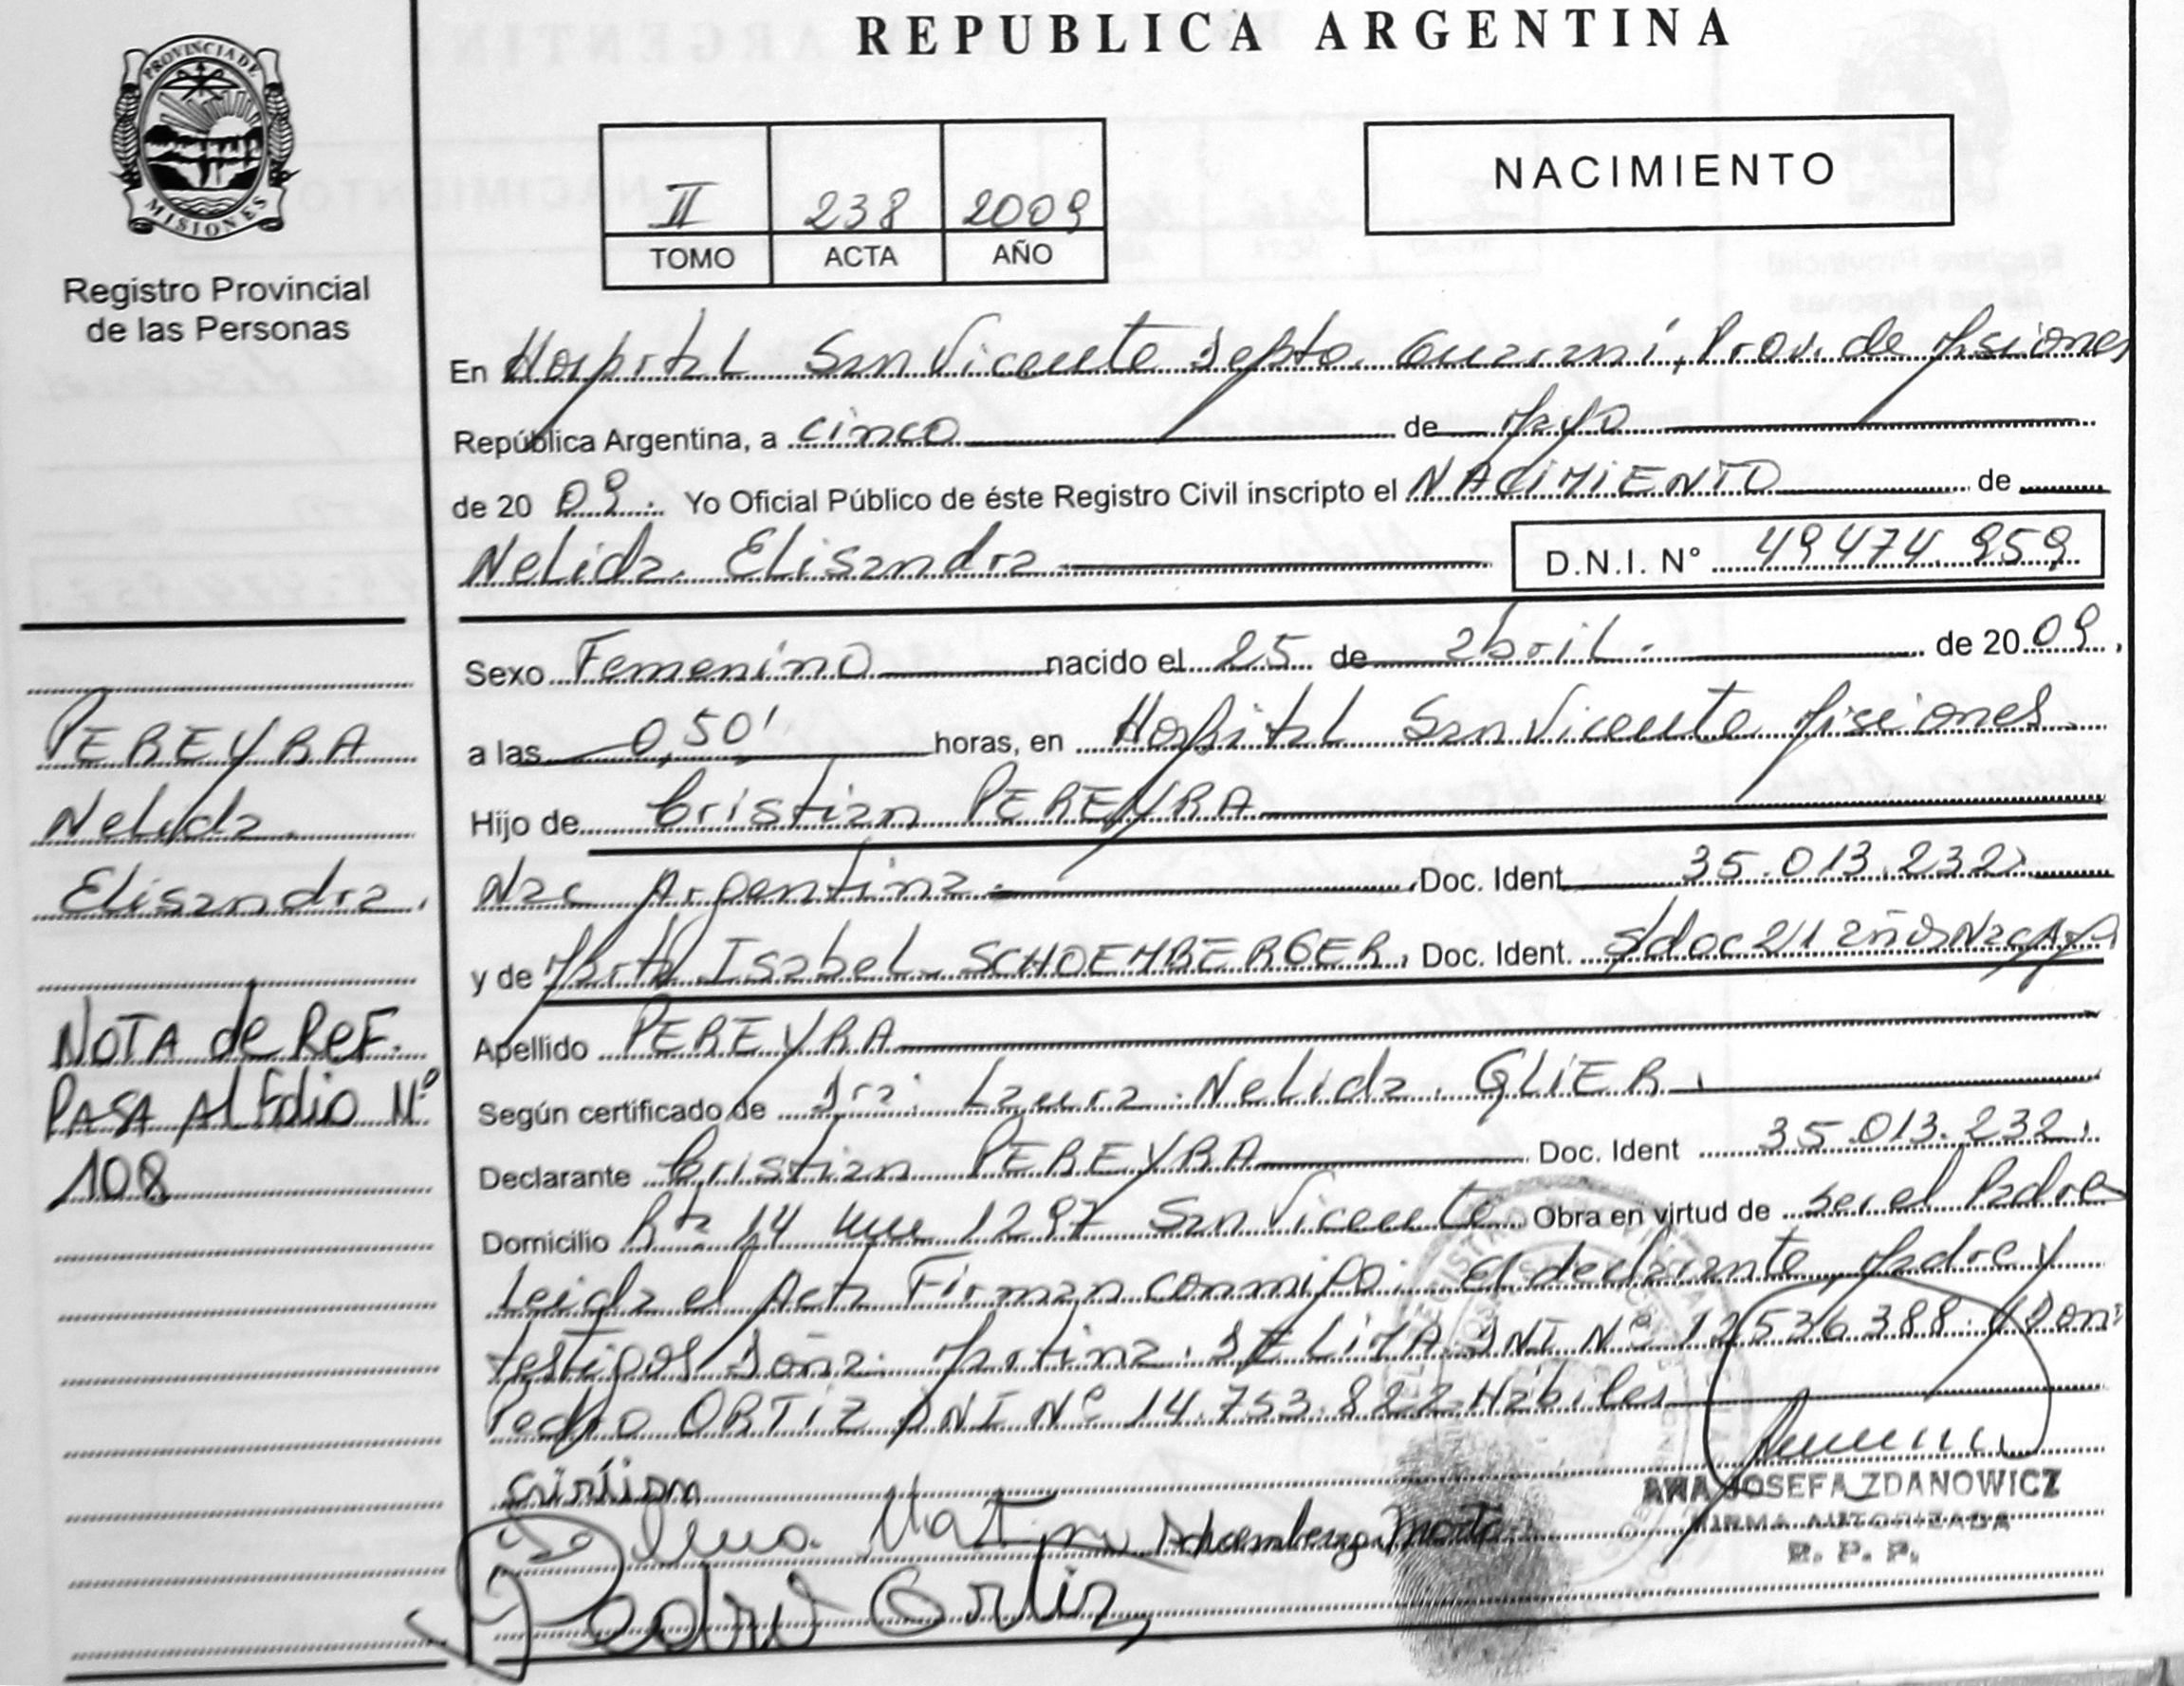 REPUBLICA ARGENTINA
PROVINCIA DE
MISIONES
Registro Provincial
de las Personas
II 238 2009
TOMO ACTA AÑO
NACIMIENTO
En Hospital San Vicente Depto. Guarani, Prov. de Misiones
República Argentina, a cinco de Mayo
de 20 09. Yo Oficial Público de éste Registro Civil inscripto el NACIMIENTO de
Nelida Elisandra D.N.I. N° 49474.959
Sexo Femenino nacido el 25 de abril. de 20 09.
a las 0,50' horas, en Hospital San Vicente Misiones
Hijo de Cristian PEREYRA
Nac Argentina. Doc. Ident 35.013.232
y de Marta Isabel SCHOEMBERGER, Doc. Ident. s/doc 21 años Nac
Apellido PEREYRA
Según certificado de Dra: Laura Nelida GLIER.
Declarante Cristian PEREYRA Doc. Ident 35.013.232.
Domicilio Rta 14 km 1297 San Vicente Obra en virtud de ser el Padre
Leida el Acta Firman conmigo: el declarante, Madre y
testigos Doña: Martina DE LIMA DNI Nº 12536388 y Don:
Pedro ORTIZ DNI Nº 14.753.822 Hábiles
PEREYRA
Nelida
Elisandra.
NOTA de REF.
PASA Al Folio Nº
108
Cristian
Schoemberger Marta
Pedro Ortiz
ANA JOSEFA ZDANOWICZ
FIRMA AUTORIZADA
R. P. P.